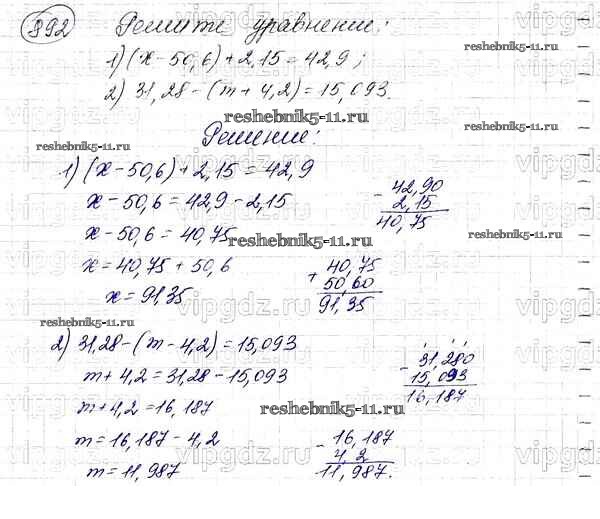 892 Решите уравнение:
1) (x - 50,6) + 2,15 = 42,9;
2) 31,28 - (m + 4,2) = 15,093.
reshebnik5-11.ru
reshebnik5-11.ru
reshebnik5-11.ru
Решение:
1) (x - 50,6) + 2,15 = 42,9
x - 50,6 = 42,9 - 2,15
- 42,90
2,15
40,75
x - 50,6 = 40,75
reshebnik5-11.ru
reshebnik5-11.ru
x = 40,75 + 50,6
+ 40,75
50,60
91,35
x = 91,35
reshebnik5-11.ru
2) 31,28 - (m - 4,2) = 15,093
m + 4,2 = 31,28 - 15,093
- 31,280
15,093
16,187
m + 4,2 = 16,187
reshebnik5-11.ru
reshebnik5-11.ru
m = 16,187 - 4,2
- 16,187
4,2
11,987.
m = 11,987
vipgdz.ru